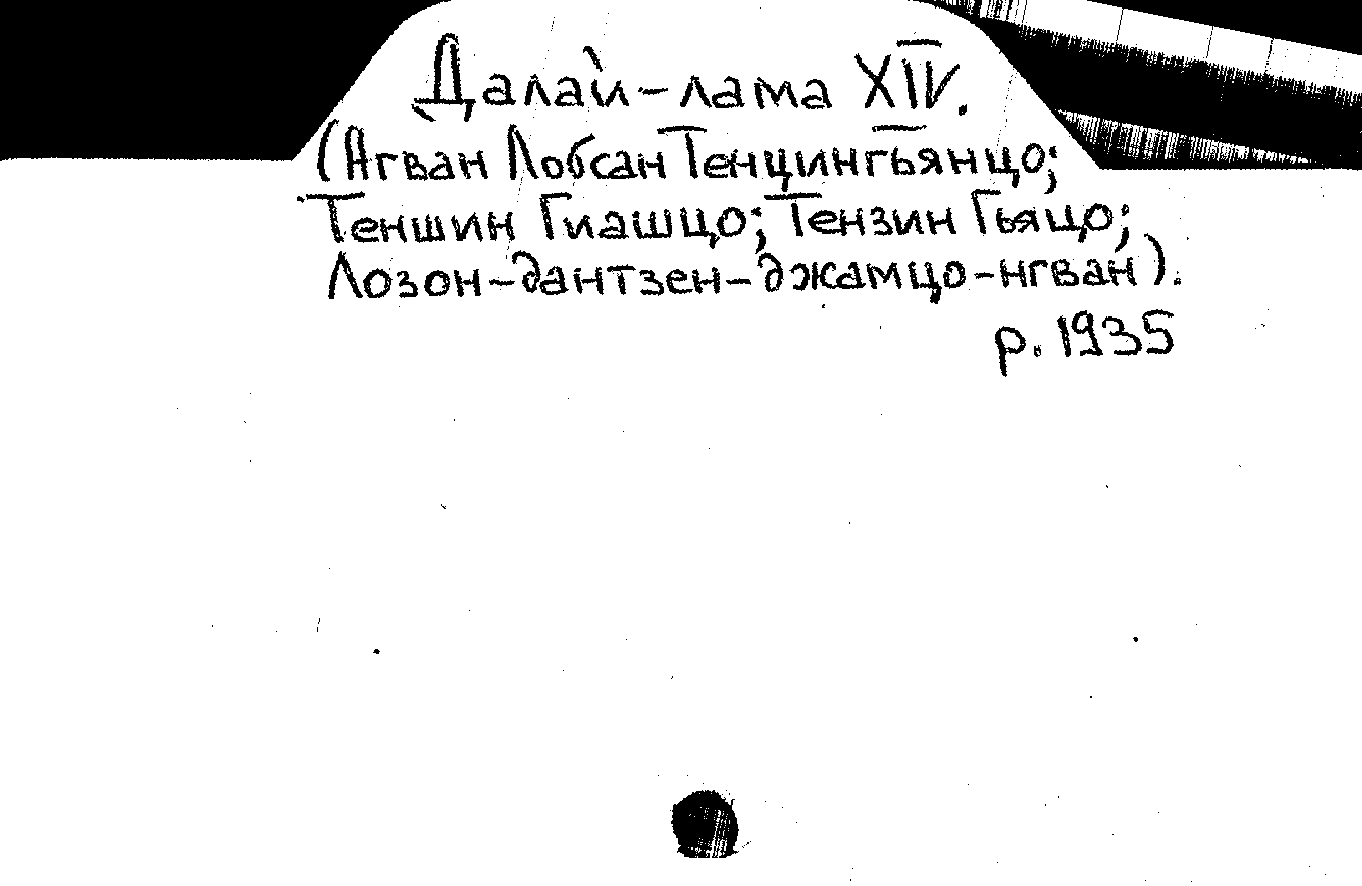 Далай-лама XIV.
(Агван Лобсан Тенцингьянцо;
Теншин Гиашцо; Тензин Гьяцо;
Лозон-дантзен-джамцо-нгван).
р. 1935